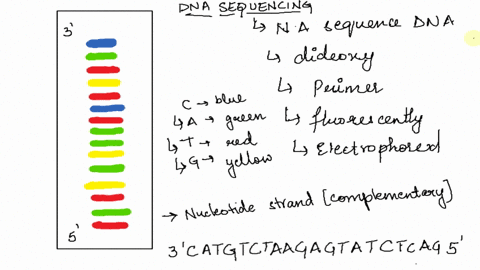 DNA SEQUENCING
↳ N.A sequence DNA
↳ dideoxy
↳ Primer
↳ fluorescently
↳ Electrophored
C → blue
↳ A → green
↳ T → red
↳ G → yellow
→ Nucleotide strand [complementary]
3' CATGTCTAAGAGTATCTCAG 5'
3'
5'